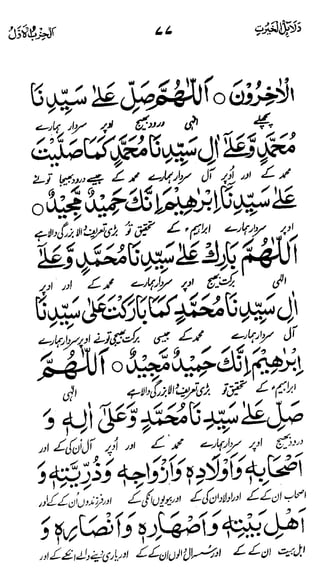 دلائل الخیرات ۷۷ الحزب الاول
الْاٰخِرُوْنَ ○ اَللّٰهُمَّ صَلِّ عَلٰى سَيِّدِنَا
پچھلے الٰہی درود بھیج اوپر سردار ہمارے
مُحَمَّدٍ وَّعَلٰٓى اٰلِ سَيِّدِنَا مُحَمَّدٍ كَمَا صَلَّيْتَ
محمد کے اور اوپر آل سردار ہمارے محمد کے جیسے درود بھیجا تونے
عَلٰى سَيِّدِنَا اِبْرٰهِيْمَ اِنَّكَ حَمِيْدٌ مَّجِيْدٌ ○
اوپر سردار ہمارے ابراہیم کے تحقیق تو بڑی تعریف والا بزرگی والا ہے
اَللّٰهُمَّ بَارِكْ عَلٰى سَيِّدِنَا مُحَمَّدٍ وَّعَلٰٓى
الٰہی برکت بھیج اوپر سردار ہمارے محمد کے اور اوپر
اٰلِ سَيِّدِنَا مُحَمَّدٍ كَمَا بَارَكْتَ عَلٰى سَيِّدِنَا
آل سردار ہمارے محمد کے جیسی برکت بھیجی تونے اوپر سردار ہمارے
اِبْرٰهِيْمَ اِنَّكَ حَمِيْدٌ مَّجِيْدٌ ○ اَللّٰهُمَّ
ابراہیم کے تحقیق تو بڑی تعریف والا بزرگی والا ہے الٰہی
صَلِّ عَلٰى سَيِّدِنَا مُحَمَّدٍ وَّعَلٰٓى اٰلِهٖ وَ
درود بھیج اوپر سردار ہمارے محمد کے اور اوپر آل اُن کی کے اور
اَصْحَابِهٖ وَاَوْلَادِهٖ وَاَزْوَاجِهٖ وَذُرِّيَّتِهٖ وَ
اصحاب اُن کے کے اور اولاد اُن کی کے اور بیویوں اُنکی کے اور فرزندوں اُن کے کے اور
اَهْلِ بَيْتِهٖ وَاَصْهَارِهٖ وَاَنْصَارِهٖ وَ
اہل بیت اُن کے کے اور سسرال والوں اُن کے کے اور یاری دینے والے اُنکے کے اور